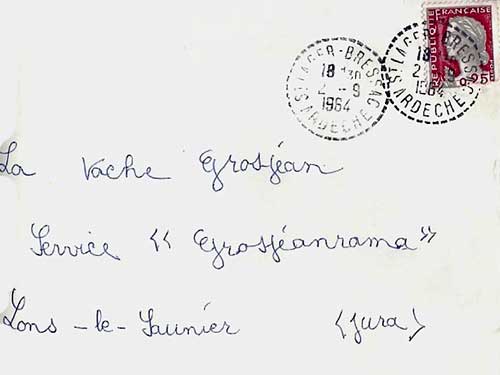 REPUBLIQUE FRANÇAISE
0,25
ST LAGER-BRESSAC
18 H30
2 -9
1964
ARDECHE
ST LAGER-BRESSAC
18
2 -9
1964
ARDECHE
La Vache Grosjean
Service « Grosjeanrama »
Lons-le-Saunier (Jura)